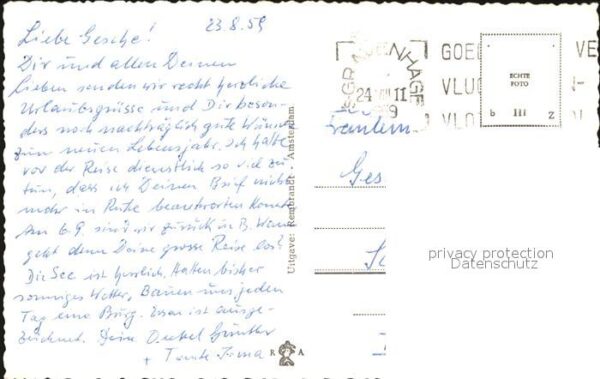 23.8.59
Liebe Gesche!
Dir und allen Deinen
Lieben senden wir recht herzliche
Urlaubsgrüsse und Dir beson-
ders noch nachträglich gute Wünsche
zum neuen Lebensjahr. Ich hatte
vor der Reise dienstlich so viel zu
tun, dass ich Deinen Brief nicht
mehr in Ruhe beantworten konnte.
Am 6.9. sind wir zurück in B. Wann
geht denn Deine grosse Reise los?
Die See ist herrlich. Hatten bisher
sonniges Wetter, Bauen uns jeden
Tag eine Burg. Essen ist ausge-
zeichnet. Deine Onkel Günther
+ Tante Irma
Uitgave: Rembrandt - Amsterdam
R A
'S-GRAVENHAGE
24 VIII
GOED
VLU
VLO
VE
ECHTE
FOTO
b III z
Fräulein
Ges
privacy protection
Datenschutz